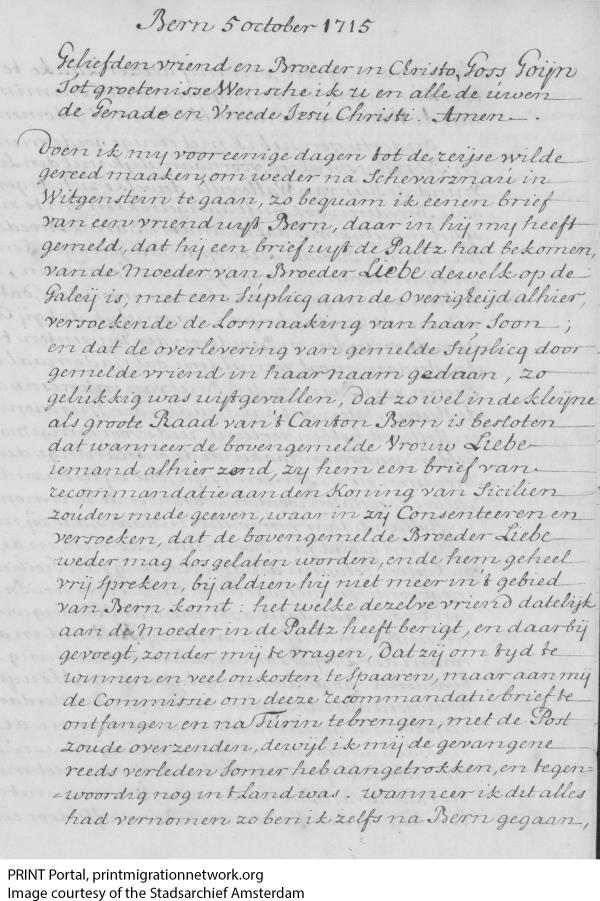 Bern 5 october 1715
Geliefden vriend en Broeder in Christo, Goss Goijn
Tot groetenisse Wensche ik u en alle de úwen
de Genade en Vreede Jesú Christi. Amen.
Doen ik my voor eenige dagen tot de reijse wilde
gereed maaken, om weder na Schevarznaú in
Witgenstein te gaan, zo bequam ik eenen brief
van een vriend uyt Bern, daar in hij my heeft
gemeld, dat hij een brief uyt de Paltz had bekomen,
van de Moeder van Broeder Liebe dewelk op de
Galeij is, met een Súplicq aan de Overigheijd alhier,
versoekende de Losmaaking van haar Soon;
en dat de overlevering van gemelde Súplicq door
gemelde vriend in haar naam gedaan, zo
gelúkkig was uytgevallen, Dat zo wel in de kleijne
als groote Raad van 't Canton Bern is besloten
dat wanneer de bovengemelde Vrouw Liebe
iemand alhier zend, zy hem een brief van
recommandatie aan den Koning van Sicilien
zoúden mede geeven, waar in zij Consenteeren en
versoeken, dat de bovengemelde Broeder Liebe
weder mag Los gelaten worden, ende hem geheel
vrij spreken, bij aldien hij niet meer in 't gebied
van Bern komt: het welke dezelve vriend datelijk
aan de Moeder in de Paltz heeft berigt, en daar bij
gevoegt, zonder mij te vragen, Dat zij om tyd te
winnen en veel onkosten te spaaren, maar aan mij
de Commissie om deeze recommandatie brief te
ontfangen en na Túrin te brengen, met de Post
zoude overzenden, dewijl ik mij de gevangene
reeds verleden Somer heb aangetrokken, en tegen-
=woordig nog in 't Land was. wanneer ik dit alles
had vernomen zo ben ik zelfs na Bern gegaan,
PRINT Portal, printmigrationnetwork.org
Image courtesy of the Stadsarchief Amsterdam